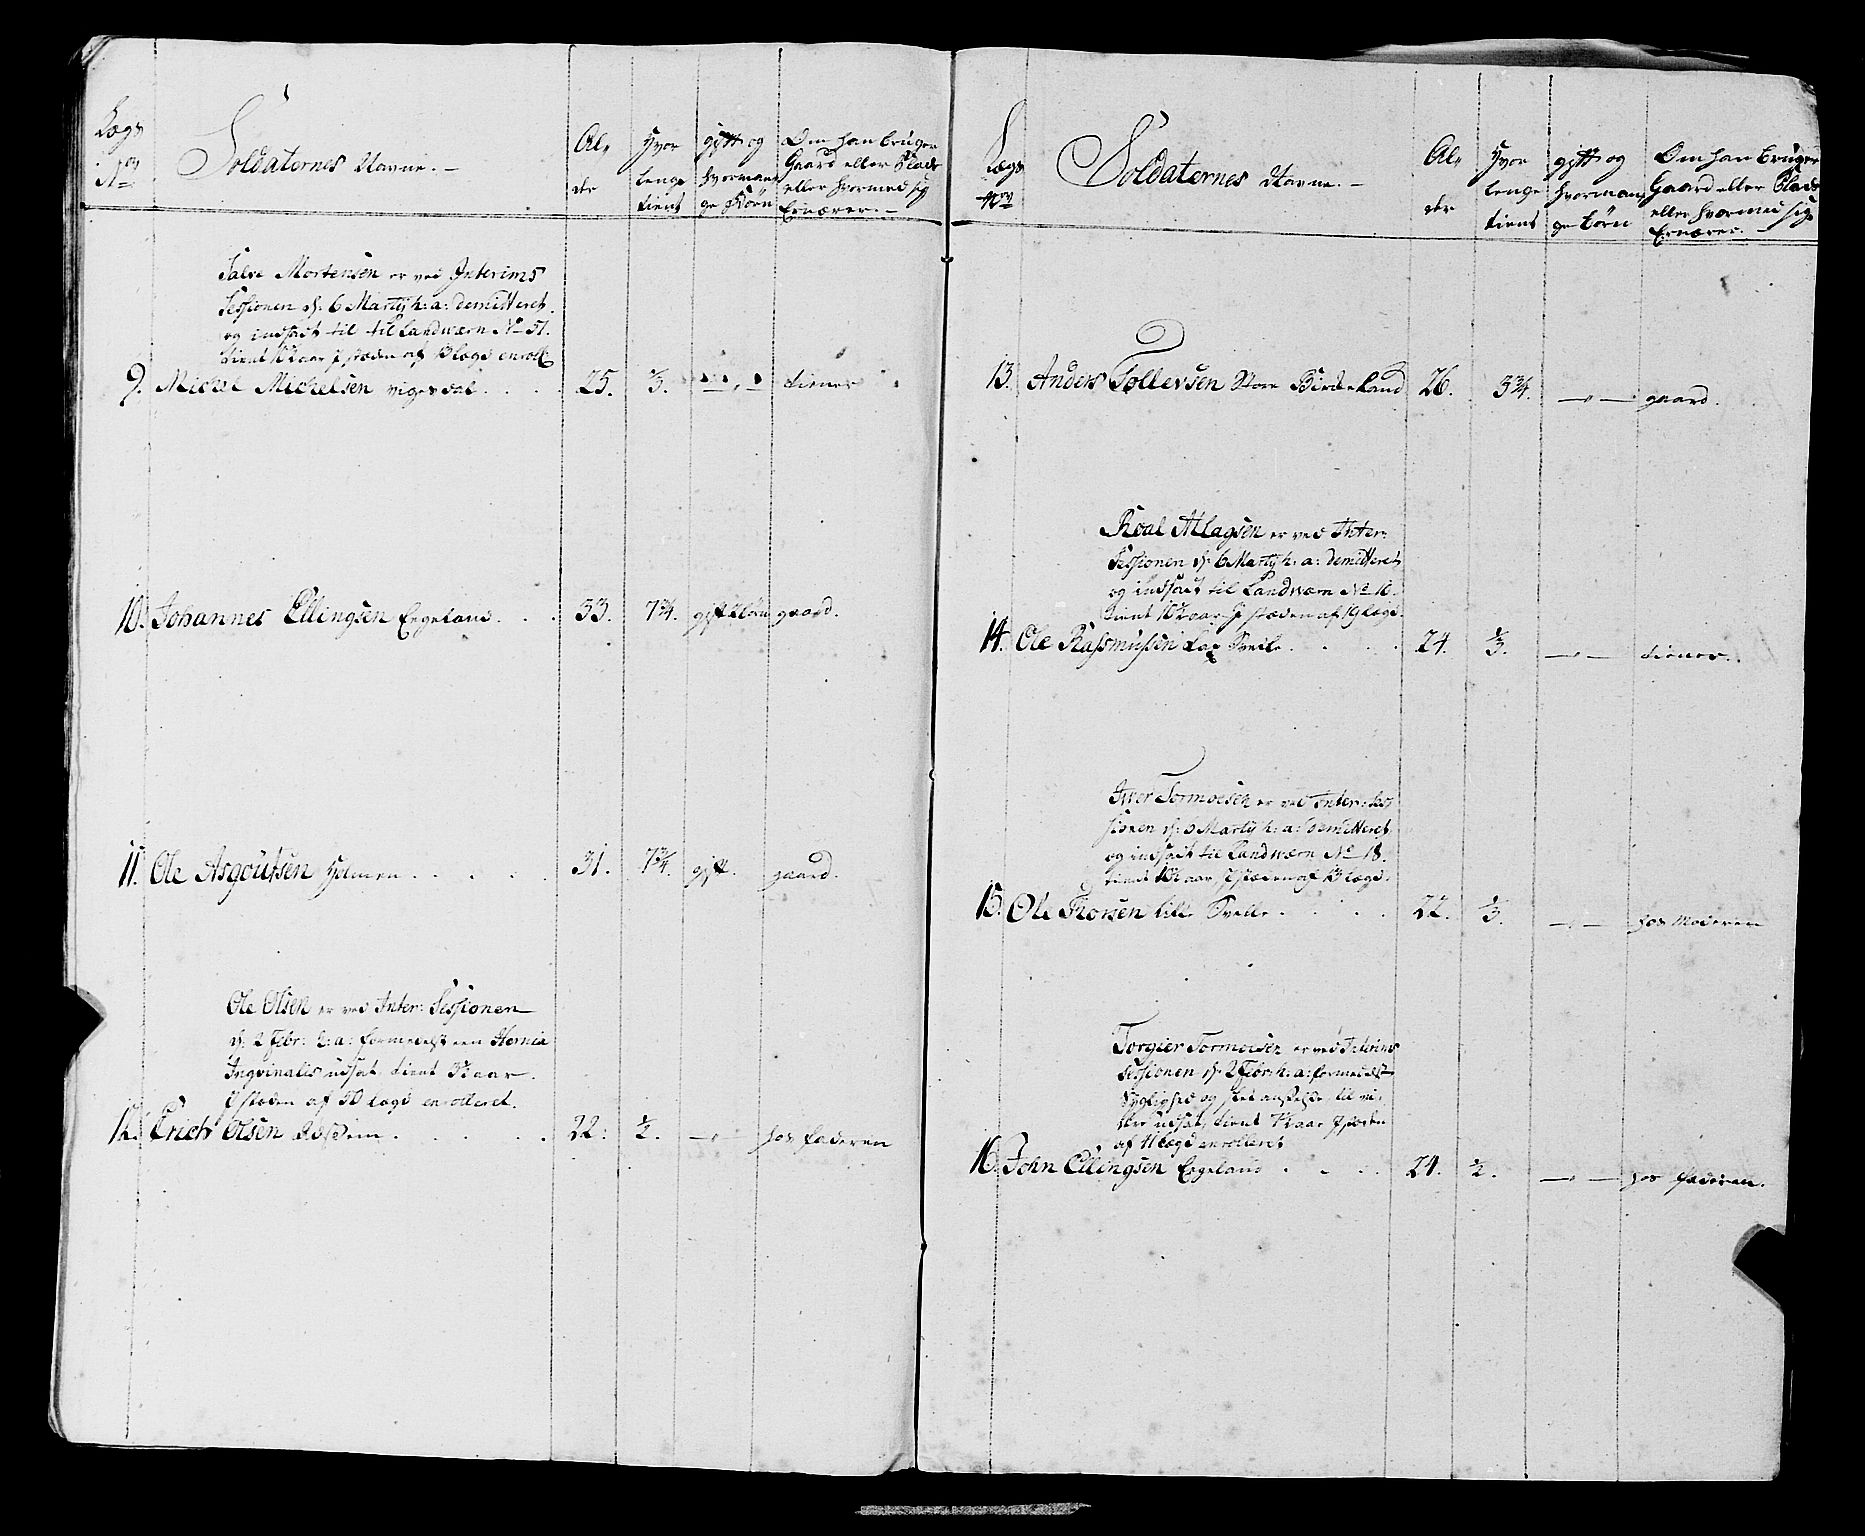 Lægs No
Soldaternes Navne.
Alder
Hvor lenge tient
gift og hvormange Børn
Om han bruger Gaard eller Plads eller hvormed sig Ernærer.
Salve Mortensen er ved Interims
Sessionen d: 6 Martij h: a: demitteret
og indsadt til til Landwærn No 51.
tient aar I stæden af lægd enroll:
9. Michel Michelsen vigesdal 25. tiener
10. Johannes Ellingsen Eegeland 33. 7¾. gift gaard.
11. Ole Asgoutsen Holmen 31. 7¾. gift. gaard.
Ole Olsen er ved Inter: Sessionen
d: 2 Febr: h: a: formedelst een Hernia
Ingvinalis udsat, tient aar.
I stæden af 50 lægd enrolleret.
12. Erich Olsen 22. ½. hos faderen
Lægs No
Soldaternes Navne.
Alder
Hvor lenge tient
gift og hvormange børn
Om han bruger Gaard eller Plads eller hvormed sig Ernærer.
13. Anders Tollevsen Store Birkeland 26. 3¾. gaard.
Roal Atlagsen er ved Inter:
Sessionen d: 6 Martij h: a: demitteret
og indsadt til Landwærn No 16.
tient aar I stæden af 19 lægd.
14. Ole Rassmussen 24. tiener.
Iver Tormoesen er ved Inter: Ses
sionen d: Martij h: a: demitteret
og indsadt til Landwærn No 18.
tient aar, I stæden af lægd.
15. Ole lille 22. hos Moderen
Torgier Tormoesen er ved Interims
Sessionen d: 2 Febr: h: a: formedelst
Syglighed og til
udsat, tient aar I stæden
af 11 lægd enrolleret
16. John Ellingsen Eegeland 24. ½. hos faderen.